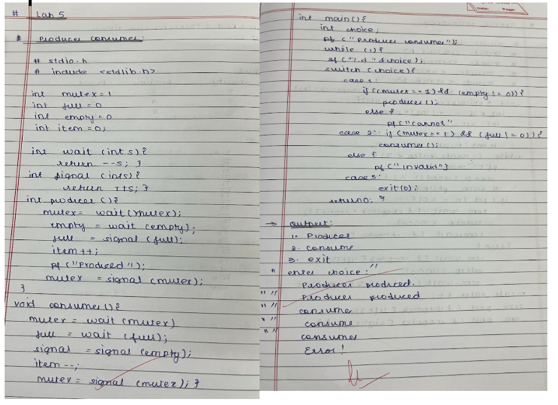 # Lab 5
Producer consumer
# stdio.h
# include <stdlib.h>
int mutex = 1
int full = 0
int empty = 0
int item = 0;
int wait (int s){
return --s; }
int signal (int s){
return ++s; }
int producer (){
mutex = wait (mutex);
empty = wait (empty);
full = signal (full);
item++;
pf ("Produced");
mutex = signal (mutex);
}
void consumer (){
mutex = wait (mutex)
full = wait (full);
signal = signal (empty);
item--;
mutex = signal (mutex); }
int main(){
int choice;
pf ("Producer consumer");
while (1){
sf ("%d" &choice);
switch (choice){
case 1:
if (mutex == 1) && (empty != 0){
producer ();
else {
pf ("cannot"
case 2: if (mutex == 1) && (full != 0){
consumer ();
else {
pf (" Invalid"}
case 3:
exit(0);
return 0; }
→ Output:
1. Producer
2. consume
3. exit
" enter choice:"
Producer produced.
" " Producer produced
" " consume
" " consume
" " consume
Error!